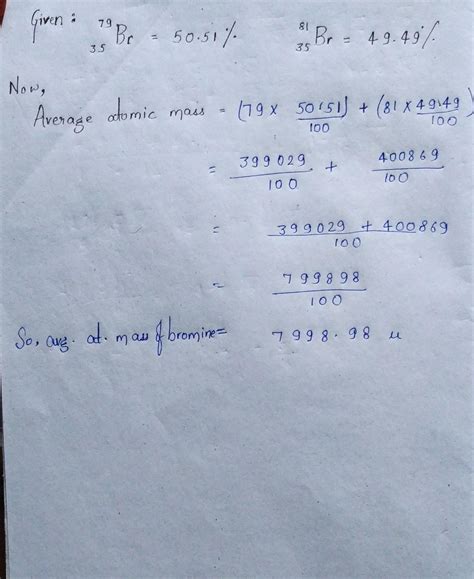 Given : ⁷⁹₃₅Br = 50.51% ⁸¹₃₅Br = 49.49%
Now,
Average atomic mass = (79 × 50.51/100) + (81 × 49.49/100)
= 399029/100 + 400869/100
= 399029 + 400869/100
= 799898/100
So, avg. at. mass of bromine = 7998.98 u